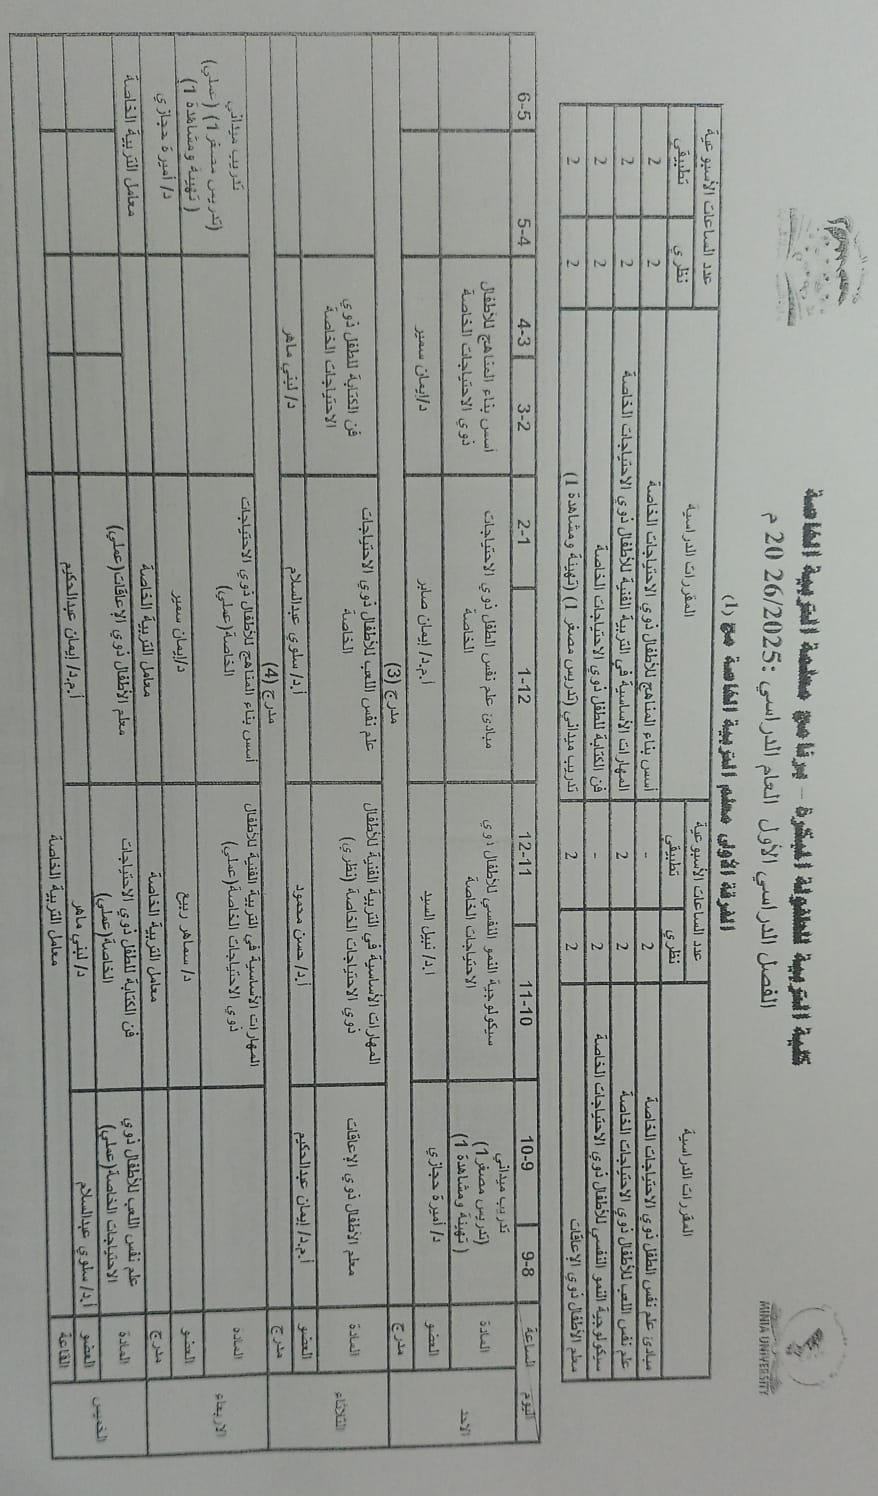 كلية التربية للطفولة المبكرة - برنامج معلمة التربية الخاصة
الفصل الدراسي الأول العام الدراسي: 20 26/2025 م
الفرقة الأولى معلم التربية الخاصة مج (1)
MINIA UNIVERSITY
المقررات الدراسية عدد الساعات الأسبوعية المقررات الدراسية عدد الساعات الأسبوعية
نظري تطبيقي نظري تطبيقي
مبادئ علم نفس الطفل ذوي الاحتياجات الخاصة 2 - أسس بناء المناهج للأطفال ذوي الاحتياجات الخاصة 2 2
علم نفس اللعب للأطفال ذوي الاحتياجات الخاصة 2 2 المهارات الأساسية في التربية الفنية للأطفال ذوي الاحتياجات الخاصة 2 2
سيكولوجية النمو النفسي للأطفال ذوي الاحتياجات الخاصة 2 - فن الكتابة للطفل ذوي الاحتياجات الخاصة 2 2
معلم الأطفال ذوي الإعاقات 2 2 تدريب ميداني (تدريس مصغر 1) (تهيئة ومشاهدة 1) 2 2
اليوم الساعة 9-8 10-9 11-10 12-11 1-12 2-1 3-2 4-3 5-4 6-5
الاحد
المادة
تدريب ميداني
(تدريس مصغر1)
(تهيئة ومشاهدة 1)
سيكولوجية النمو النفسي للأطفال ذوي
الاحتياجات الخاصة
مبادئ علم نفس الطفل ذوي الاحتياجات
الخاصة
أسس بناء المناهج للأطفال
ذوي الاحتياجات الخاصة
العضو د/ أميرة حجازي ا.د/ نبيل السيد أ.م.د/ إيمان صابر د/إيمان سمير
مدرج مدرج (3)
الثلاثاء
المادة
معلم الأطفال ذوي الإعاقات
المهارات الأساسية في التربية الفنية للأطفال
ذوي الاحتياجات الخاصة (نظري)
علم نفس اللعب للأطفال ذوي الاحتياجات
الخاصة
فن الكتابة للطفل ذوي
الاحتياجات الخاصة
العضو أ.م.د/ إيمان عبدالحكيم أ.د/ حسن محمود أ.د/ سلوي عبدالسلام د/ لبني ماهر
مدرج مدرج (4)
الاربعاء
المادة
المهارات الأساسية في التربية الفنية للأطفال
ذوي الاحتياجات الخاصة(عملي)
أسس بناء المناهج للأطفال ذوي الاحتياجات
الخاصة(عملي)
تدريب ميداني
(تدريس مصغر1) (عملي)
(تهيئة ومشاهدة 1)
العضو د/ سماهر ربيع د/إيمان سمير د/ أميرة حجازي
مدرج معامل التربية الخاصة معامل التربية الخاصة معامل التربية الخاصة
الخميس
المادة
علم نفس اللعب للأطفال ذوي
الاحتياجات الخاصة(عملي)
فن الكتابة للطفل ذوي الاحتياجات
الخاصة(عملي)
معلم الأطفال ذوي الإعاقات(عملي)
العضو أ.د/ سلوي عبدالسلام د/ لبني ماهر أ.م.د/ إيمان عبدالحكيم
القاعة معامل التربية الخاصة